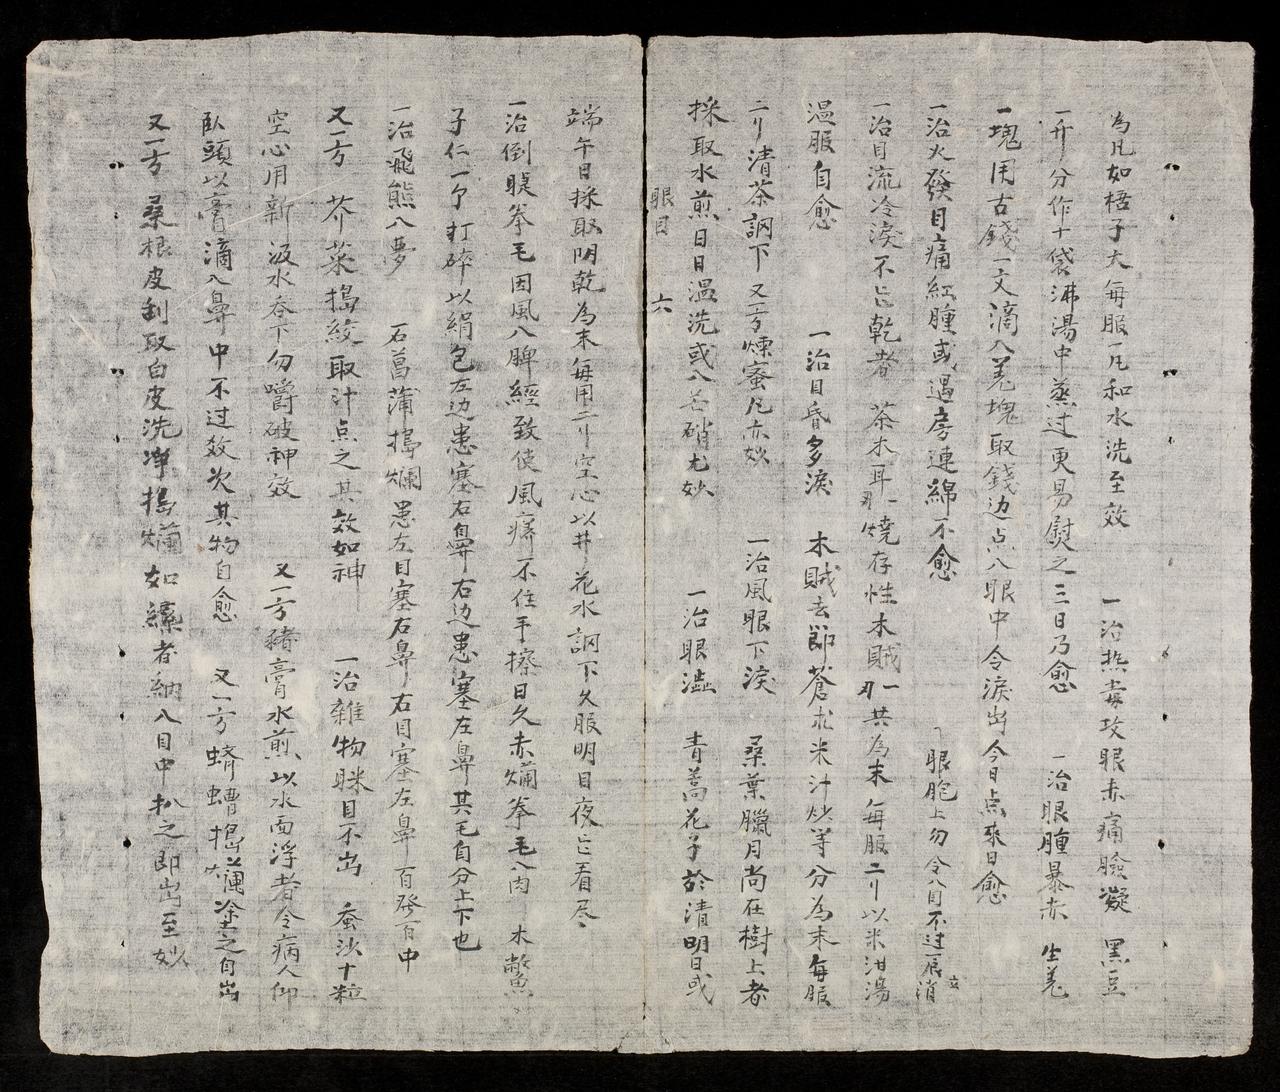 為凡如梧子大每服一凡和水洗至效 一治热毒攻眼赤痛臉凝 黑豆
一升分作十袋沸湯中蒸过更易熨之三日乃愈 一治眼腫暴赤 生羗
一塊用古錢一文滴入羗塊取錢边点入眼中令淚出今日点來日愈
一治火發目痛紅腫或遇房連綿不愈 眼胞上勿令入目不过一宿立消
一治目流冷淚不亡乾者 茶木耳一刄燒存性木賊一刄共為末每服二刂以米泔湯
温服自愈 一治目昏多淚 木賊去節蒼朮米汁炒等分為末每服
二刂清茶調下 又方煉蜜凡亦妙 一治風眼下淚 桑葉臘月尚在樹上者
採取水煎日日温洗或入芒硝尤妙 一治眼澁 青蒿花子於清明日或
眼目 六
端午日採取阴乾為末每用二刂空心以井花水調下久服明目夜亡看尽
一治倒睫拳毛因風入脾經致使風痒不住手擦日久赤爛拳毛入肉 木鱉
子仁一个打碎以絹包左边患塞右鼻右边患塞左鼻其毛自分上下也
一治飛熊入夢 石菖蒲搗爛患左目塞右鼻右目塞左鼻百發百中
又一方 芥菜搗絞取汁点之其效如神 一治雜物眯目不出 蚕沙十粒
空心用新汲水吞下勿嚼破神效 又一方豬膏水煎以水面浮者令病人仰
臥頭以膏滴入鼻中不过效次其物自愈 又一方蠐螬搗爛塗之自出
又一方 桑根皮刮取白皮洗凈搗爛如縷者納入目中扒之即出至妙